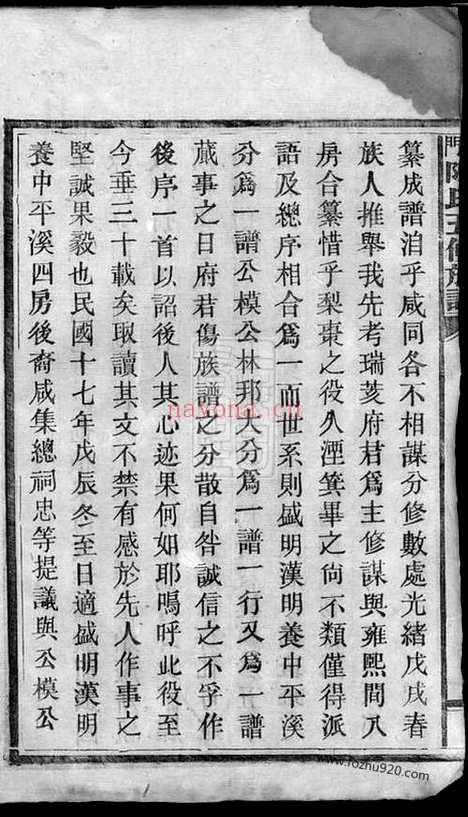 陳氏五修族譜
纂成譜洎乎咸同各不相謀分修數處光緒戊戌春
族人推舉我先考瑞芰府君爲主修謀與雍熙間八
房合纂惜乎梨棗之役久湮箕畢之尙不類僅得派
語及總序相合爲一而世系則盛明漢明養中平溪
分爲一譜公模公林邦大分爲一譜一行又爲一譜
蕆事之日府君傷族譜之分散自咎誠信之不孚作
後序一首以詔後人其心迹果何如耶嗚呼此役至
今垂三十載矣取讀其文不禁有感於先人作事之
堅誠果毅也民國十七年戊辰冬至日適盛明漢明
養中平溪四房後裔咸集總祠忠等提議與公模公
nayona.cn
www.fozhu920.com